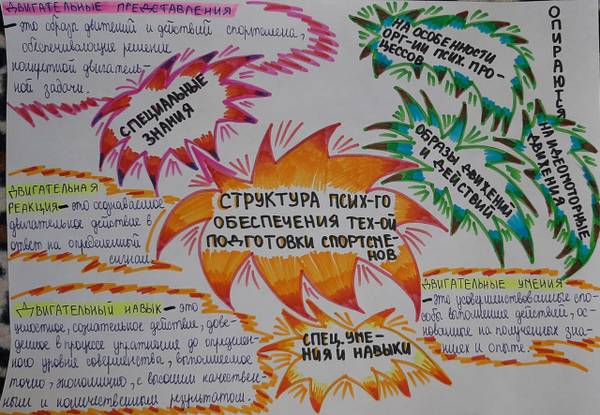 ДВИГАТЕЛЬНЫЕ ПРЕДСТАВЛЕНИЯ
– это образы движений и действий спортсмена,
обеспечивающие решение
конкретной двигатель-
ной задачи.
СПЕЦИАЛЬНЫЕ
ЗНАНИЯ
НА ОСОБЕННОСТИ
ОРГ-ИИ ПСИХ. ПРО-
ЦЕССОВ
ОПИРАЮТСЯ
ОБРАЗЫ ДВИЖЕНИЙ
И ДЕЙСТВИЙ
НА ИДЕОМОТОРНЫЕ
ДВИЖЕНИЯ
ДВИГАТЕЛЬНАЯ
РЕАКЦИЯ – это осознаваемое
двигательное действие в
ответ на определенный
сигнал.
СТРУКТУРА ПСИХ-ГО
ОБЕСПЕЧЕНИЯ ТЕХ-ОЙ
ПОДГОТОВКИ СПОРТСМЕ-
НОВ
ДВИГАТЕЛЬНЫЕ УМЕНИЯ
– это усовершенствованные спо-
соба выполнения действий, ос-
нованные на полученных зна-
ниях и опыте.
ДВИГАТЕЛЬНЫЙ НАВЫК – это
целостное, сознательное действие, дове-
денное в процессе упражнения до определен-
ного уровня совершенства, выполняемое
точно, экономично, с высоким качествен-
ным и количественным результатом.
СПЕЦ. УМЕ-
НИЯ И НАВЫКИ